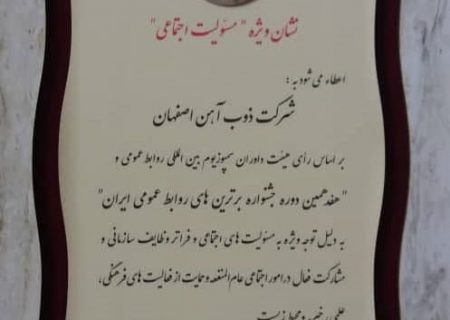 نشان ویژه " مسئولیت اجتماعی "
اعطاء می شود به :
شرکت ذوب آهن اصفهان
بر اساس رأی هیئت داوران سمپوزیوم بین المللی روابط عمومی و
" هفدهمین دوره جشنواره برترین های روابط عمومی ایران "
به دلیل توجه ویژه به مسئولیت های اجتماعی و فراتر وظایف سازمانی و
مشارکت فعال در امور اجتماعی عام المنفعه و حمایت از فعالیت های فرهنگی،
علمی، خیریه و محیط زیست